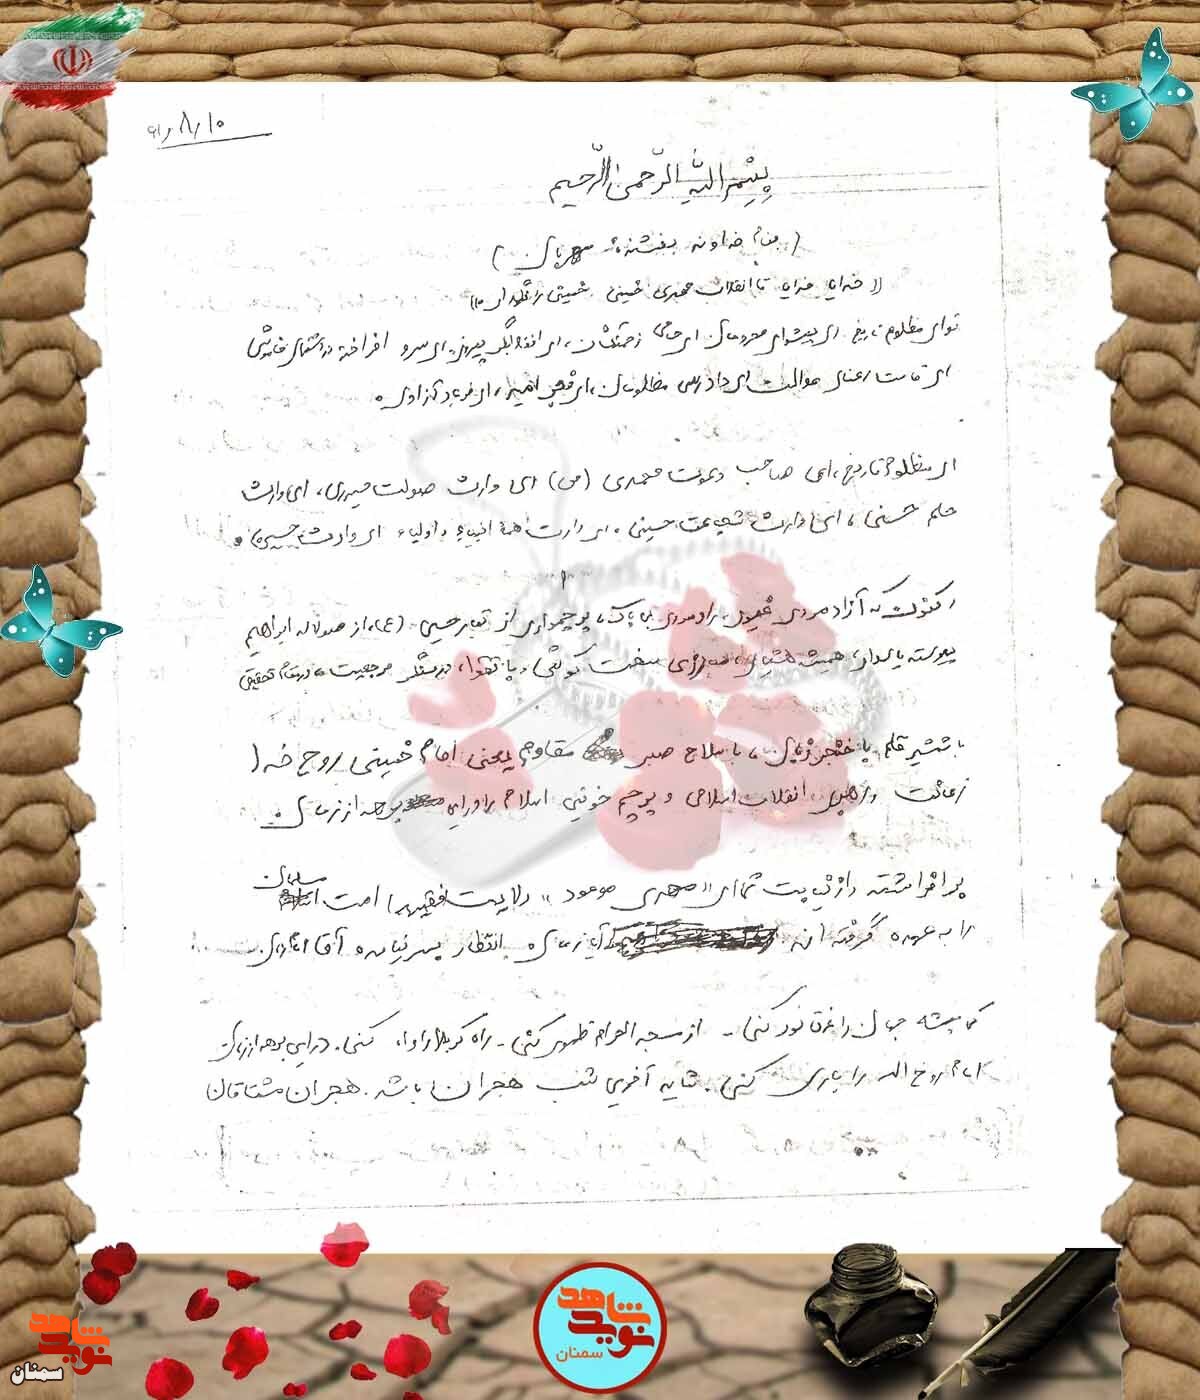 ۶۱٫۸٫۱۰
بِسْمِ اللهِ الرَّحمنِ الرَّحیم
( بنام خداوند بخشنده مهربان )
(( خدایا خدایا تا انقلاب مهدی خمینی خمینی را نگهدار ))
توای مظلوم تاریخ. ای پیشوای محرومان ای حامی زحمتکشان، ای پیروز، ای سرو افراخته
ای قامت رعنای عدالت ای دادرس مظلومان، ای امید، ای فریاد آزادی.
ای مظلوم تاریخ، ای صاحب دعوت محمدی (ص) ای وارث صولت حیدری، ای وارث
حلم حسنی، ای وارث شجاعت حسینی، ای وارث همه انبیاء و اولیاء ای وارث
اکنون که آزاد مردی غیور، رادمردی بی باک، پرچمداری از تبار حسین (ع)، از ابراهیم
پیوسته پایدار، همیشه هشیار، سخت کوش، با تقوا، مرجعیت،
با شمشیر قلم با خنجر زبان، با سلاح صبر مقاوم یعنی امام خمینی روح خدا
زعامت و رهبری انقلاب اسلامی و پرچم خونین اسلام را در این برهه از زمان.
برافراشته و از نیابت شما ای (( مهدی موعود )) ولایت فقیه امت مسلمان
را به عهده گرفته اند آیا زمان انتظار بسر نیامده آقا امام زمان.
که همیشه جهان را غرق نور کنی - از مسجد الحرام ظهور کنی - راه کربلا را وا، کنی. در این برهه از زمان
امام روح الله را یاری کنی. شاید آخرین شب هجران باشد. هجران مشتاقان
نوید شاهد
سمنان
نوید شاهد
سمنان